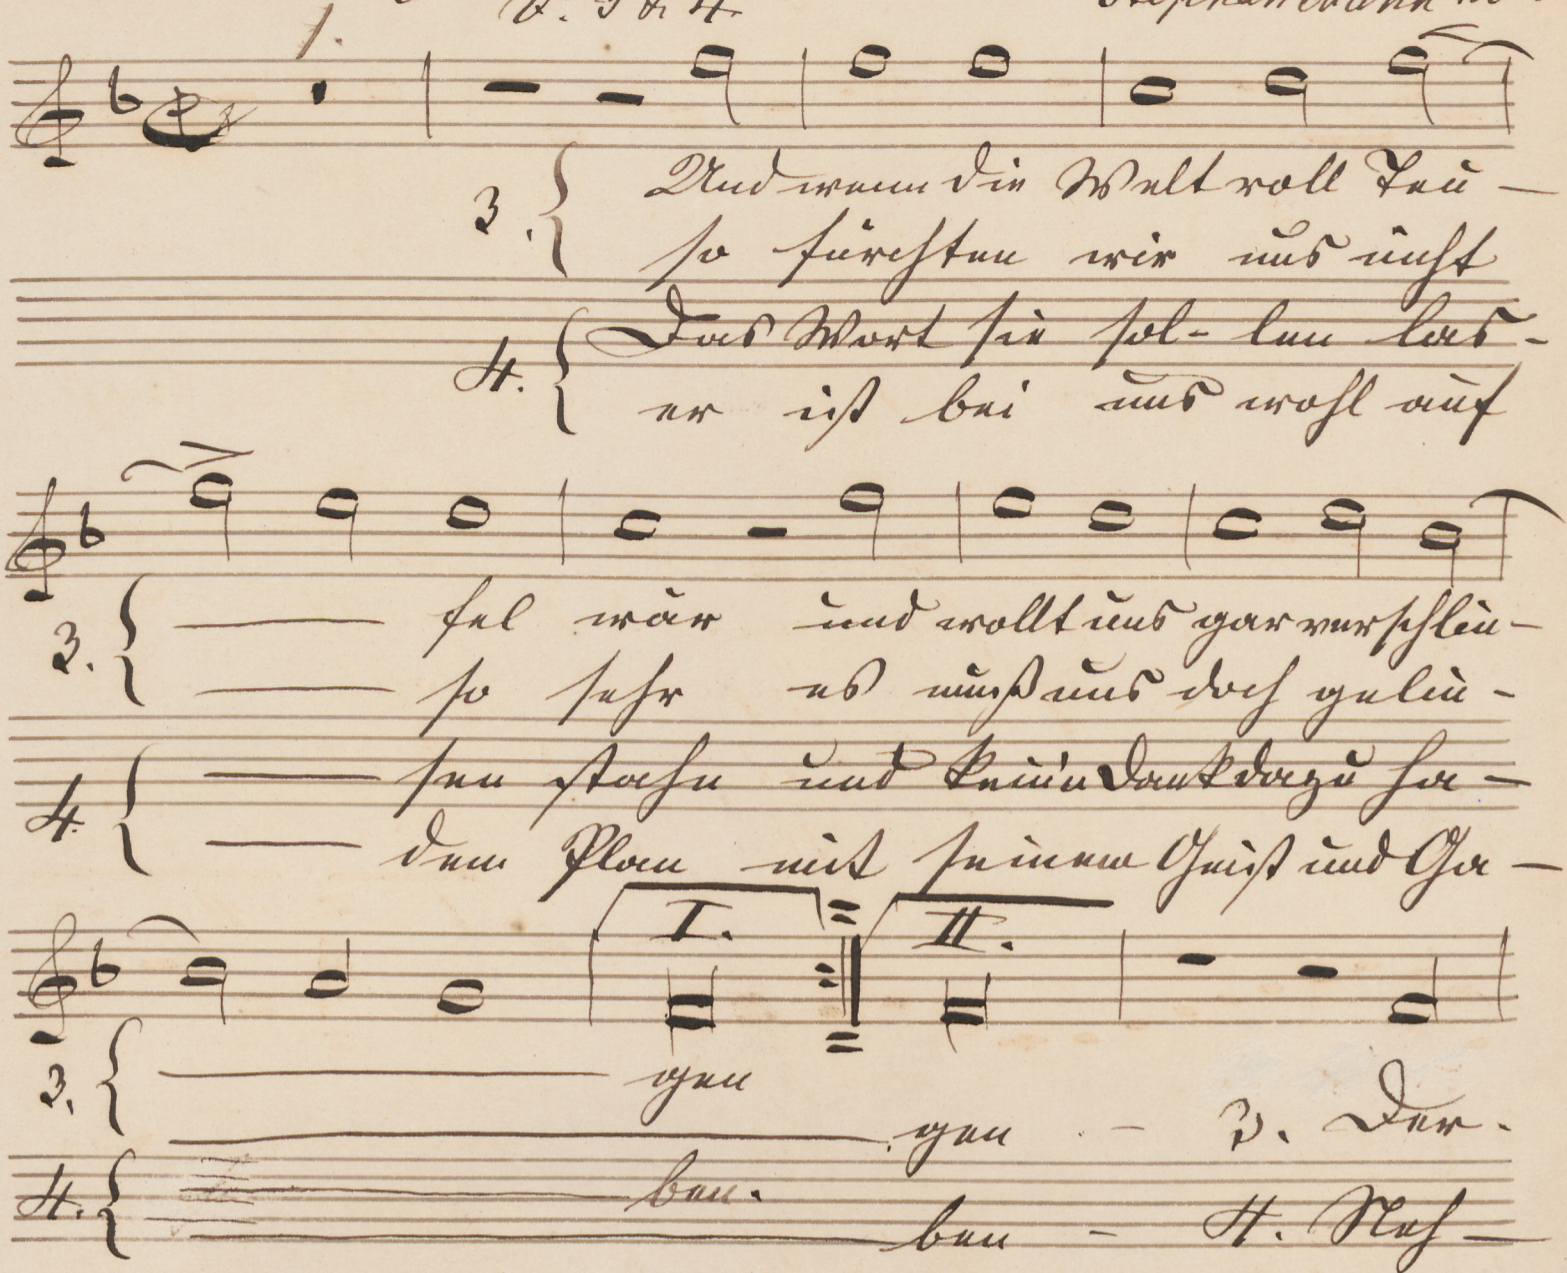 1.
V. 3 & 4.
3. Und wenn die Welt voll Teu-
so fürchten wir uns nicht
4. Das Wort sie sol- len las-
er ist bei uns wohl auf
3. fel wär und wollt uns gar verschlin-
so sehr es muß uns doch gelin-
4 sen stahn und kein'n Dank dazu ha-
dem Plan mit seinem Geist und Ga-
I. II.
3. gen
gen - 3. Der-
4. ben.
ben - 4. Neh-